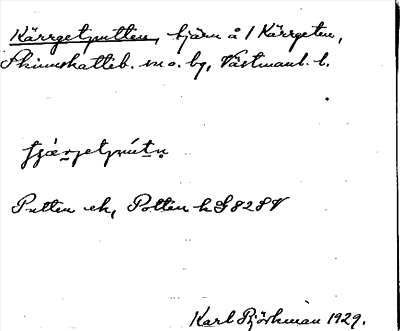 Kärrgetputten, tjärn å 1 Kärrgeten,
Skinnskatteb. sn o. bg, Västmanl. l.
Putten ek, Potten h G82SV
Karl Björkman 1929.